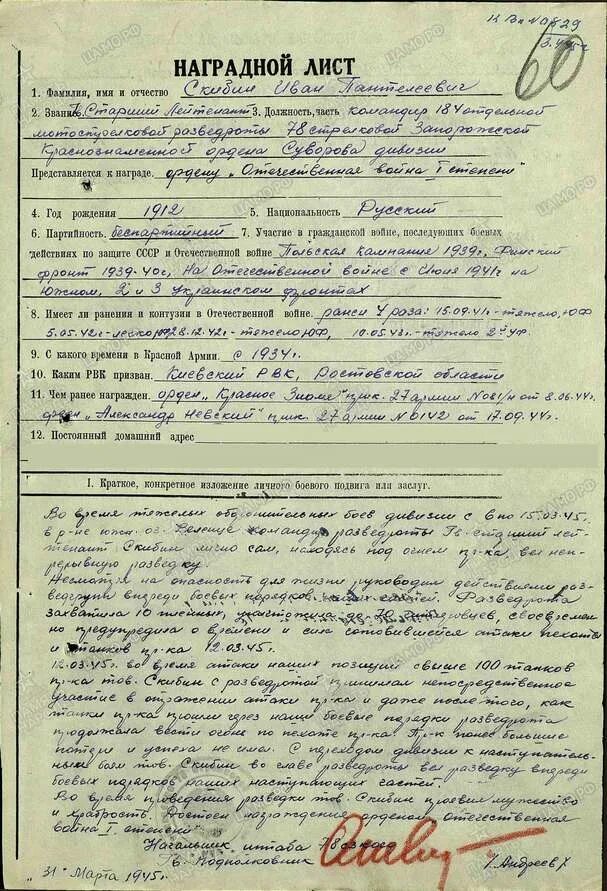 60
НАГРАДНОЙ ЛИСТ
1. Фамилия, имя и отчество Скибин Иван Пантелеевич
2. Звание Гв. Старший Лейтенант 3. Должность, часть командир 184 отдельной
мотострелковой разведроты 78 стрелковой Запорожской
Краснознаменной ордена Суворова дивизии
Представляется к награде. ордену „Отечественная война I степени"
4. Год рождения 1912 5. Национальность Русский
6. Партийность. беспартийный 7. Участие в гражданской войне, последующих боевых
действиях по защите СССР и Отечественной войне Польская кампания 1939г, Финский
фронт 1939-40г, На Отечественной войне с Июня 1941г на
Южном, 2 и 3 Украинском фронтах
8. Имеет ли ранения и контузии в Отечественной войне. ранен 4 раза: 15.09.41г-тяжело, ЮФ
5.05.42г-легко ЮФ 28.12.42г-тяжело ЮФ, 10.05.43г.-тяжело 2й УФ.
9. С какого времени в Красной Армии. с 1934г.
10. Каким РВК призван. Киевский РВК, Ростовской области
11. Чем ранее награжден. орден „Красное Знамя" прик. 27 армии №081/н от 8.06.44г.
орден „Александр Невский" прик. 27 армии №0142 от 17.09.44г.
12. Постоянный домашний адрес
I. Краткое, конкретное изложение личного боевого подвига или заслуг.
Во время тяжелых оборонительных боев дивизии с 6 по 15.03.45г.
в р-не южн. оз. Веленце командир разведроты Гв. старший лей-
тенант Скибин лично сам, находясь под огнем пр-ка, вел неп-
рерывную разведку.
Несмотря на опасность для жизни руководил действиями раз-
ведгрупп впереди боевых порядков наших частей. Разведрота
захватила 10 пленных, уничтожила до 70 гитлеровцев, своевремен-
но предупредила о времени и силе готовившейся атаки пехоты
и танков пр-ка 12.03.45г.
12.03.45г. во время атаки наших позиций свыше 100 танков
пр-ка тов. Скибин с разведротой принимал непосредственное
участие в отражении атаки пр-ка и даже после того, как
танки пр-ка прошли через наши боевые порядки разведрота
продолжала вести огонь по пехоте пр-ка. Пр-к понес большие
потери и успеха не имел. С переходом дивизии к наступатель-
ным боям тов. Скибин во главе разведроты вел разведку впереди
боевых порядков наших наступающих частей.
Во время проведения разведки тов. Скибин проявил мужество
и храбрость. Достоин награждения орденом „Отечественная
война I степени"
Начальник штаба 78 сзксд
Гв. Подполковник /Андреев/
"31" Марта 1945г.